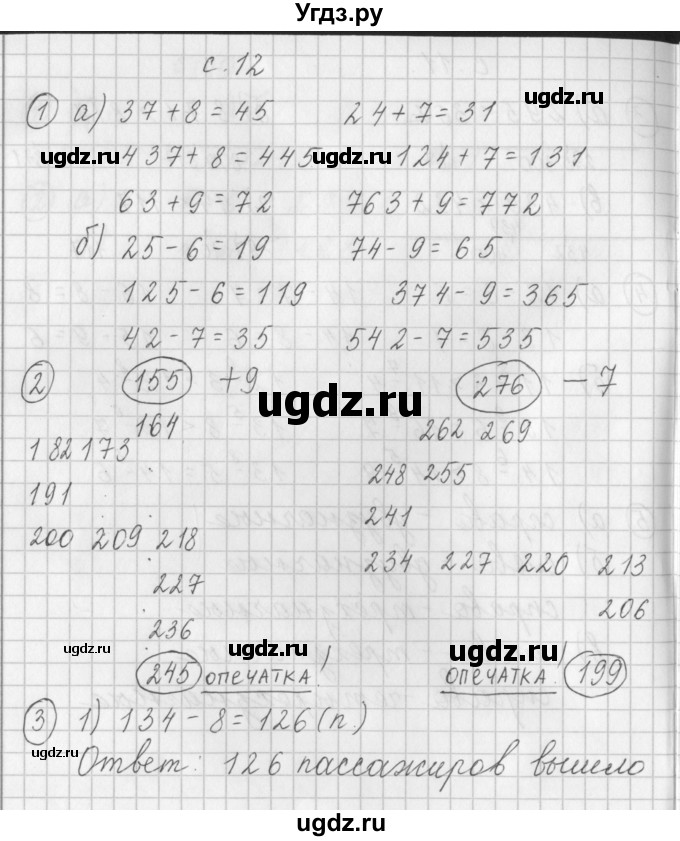 Угдз.ру
с. 12
① а) 37 + 8 = 45 24 + 7 = 31
ugdz.ru
ugdz.ru 437 + 8 = 445 ugdz.ru 124 + 7 = 131
63 + 9 = 72 763 + 9 = 772
б) 25 - 6 = 19 74 - 9 = 65
125 - 6 = 119 374 - 9 = 365
42 - 7 = 35 542 - 7 = 535
② 155 + 9 276 - 7
ugdz.ru
164 262 269
182 173
248 255
191 241
200 209 218
234 227 220 213
227
206
236
ugdz.ru ugdz.ru ugdz.ru
245 ОПЕЧАТКА! ОПЕЧАТКА! 199
③ 1) 134 - 8 = 126 (п.)
ugdz.ru
Ответ: 126 пассажиров вышло
ugdz.ru ugdz.ru
ugdz.ru